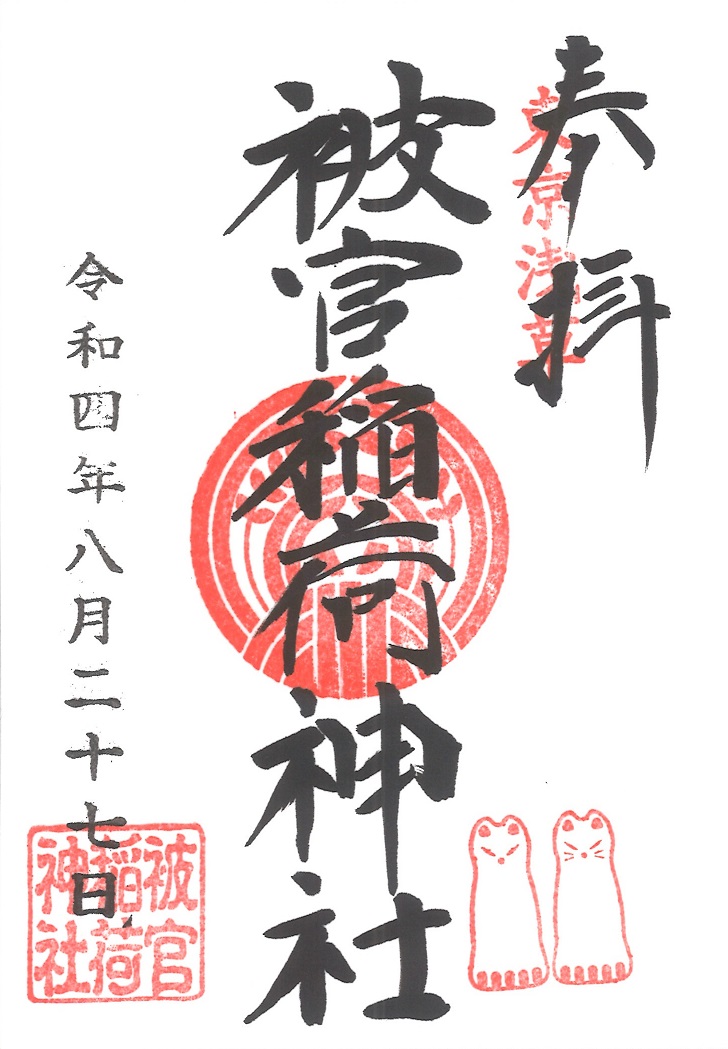 奉拝
東京浅草
被官稲荷神社
令和四年八月二十七日
被官
稲荷
神社